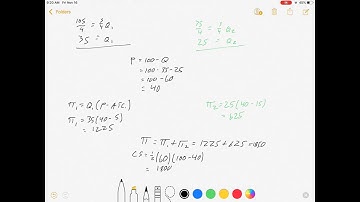 9:20 AM Fri Nov 16
Folders
105/4 = 3/4 Q₁
35 = Q₁
75/4 = 1/4 Q₂
25 = Q₂
P = 100 - Q
= 100 - 35 - 25
= 100 - 60
= 40
π₁ = Q₁(P - ATC)
π₁ = 35(40 - 5)
= 1225
π₂ = 25(40 - 15)
= 625
π = π₁ + π₂ = 1225 + 625 = 1850
CS = 1/2(60)(100 - 40)
= 1800